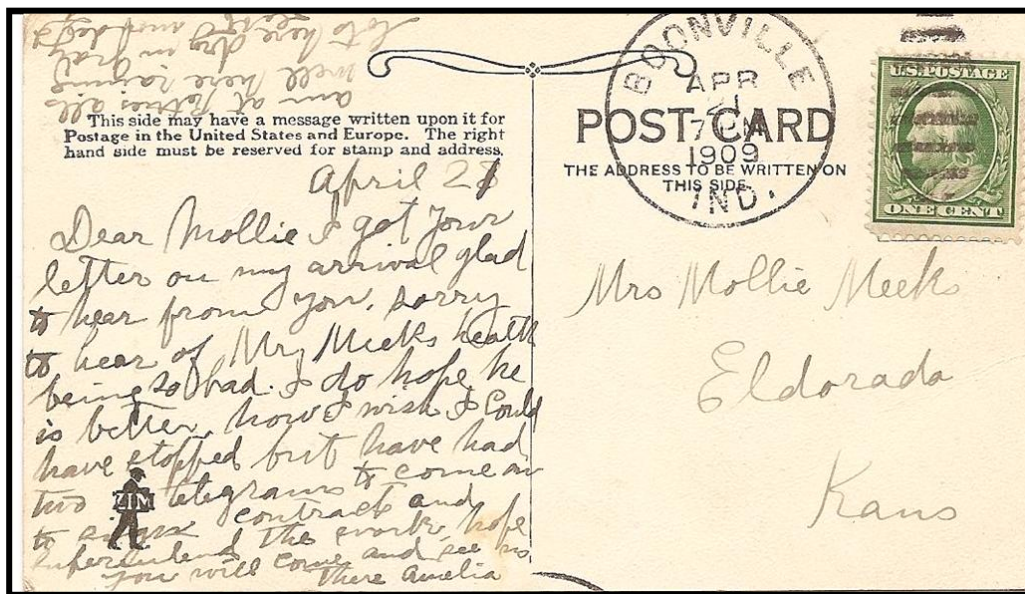 This side may have a message written upon it for
Postage in the United States and Europe. The right
hand side must be reserved for stamp and address.
April 21
Dear Mollie I got your
letter on my arrival glad
to hear from you, sorry
to hear of Mr Meeks health
being so bad. I do hope he
is better, how I wish I Could
have stopped but have had
two telegrams to come on
to contract and
superintend the work, hope
you will come and see us
there Amelia
am at Lotties all
well here raining
lots here dry in
ZIM
BOONVILLE
APR
21
7
1909
IND.
POST CARD
THE ADDRESS TO BE WRITTEN ON
THIS SIDE
U.S. POSTAGE
ONE CENT
Mrs Mollie Meeks
Eldorado
Kans